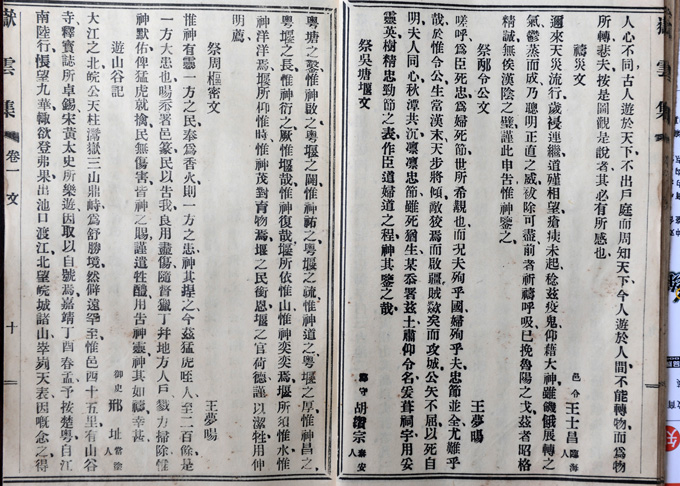 人心不同古人遊於天下不出戶庭而周知天下今人遊於人間不能轉物而爲物
所轉悲夫按是圖觀是說者其必有所感也
禱災文
邑令王士昌臨海人
邇來天災流行歲祲連繼道殣相望瘡痍未起稔茲疫鬼仰藉大神雖饑俄展轉之
氣鬱蒸而成乃聰明正直之威祓除可盡前者祈禱呼吸已挽魯陽之戈茲者昭格
精誠無俟漢陰之璧謹此申告惟神鑒之
祭邴令公文
王夢暘
嗟呼爲臣死忠爲婦死節世所希覯也而况夫殉乎國婦殉乎夫忠節並全尤難乎
哉於惟令公生當漢末天步將傾敵狡焉而啟疆賊歘矣而攻城公矢不屈以死自
明夫人同心秋潭共沉凛凛忠節雖死猶生某忝署兹土肅仰令名爰葺祠宇用妥
靈英樹精忠勁節之表作臣道婦道之程神其鑒之哉
祭吳塘堰文
郡守胡纘宗泰安人
粤塘之鑿惟神啟之粤堰之闢惟神祐之粤堰之疏惟神道之粤堰之厚惟神昌之
粤堰之長惟神衍之厥惟堰哉惟神復哉堰所依惟山惟神奕奕焉堰所須惟水惟
神洋洋焉堰所仰惟時惟神茂對育物焉堰之民衡恩堰之官荷德謹以潔牲用伸
明薦
祭周樞密文
王夢暘
惟神有靈一方之民奉爲香火則一方之患神其捍之今茲猛虎咥人至二百餘是
一方大患也暘忝署邑篆民以告我良用盡傷隨督獵丁幷地方人戶戮力掃除惟
神默佑俾猛虎就擒民無傷害皆神之賜謹遣牲醴用吿神靈神其如禱幸甚
遊山谷記
御史邢址當塗人
大江之北皖公天柱潛嶽三山鼎峙爲舒勝境然僻遠罕至惟邑西十五里有山谷
寺釋寳誌所卓錫宋黃太史所樂遊因取以自號焉嘉靖丁酉春孟予按楚粤自江
南陸行悵望九華輙欲登弗果出池口渡江北望皖城諸山峷峛天表因慨念之得
嶽雲集
卷一
文
十